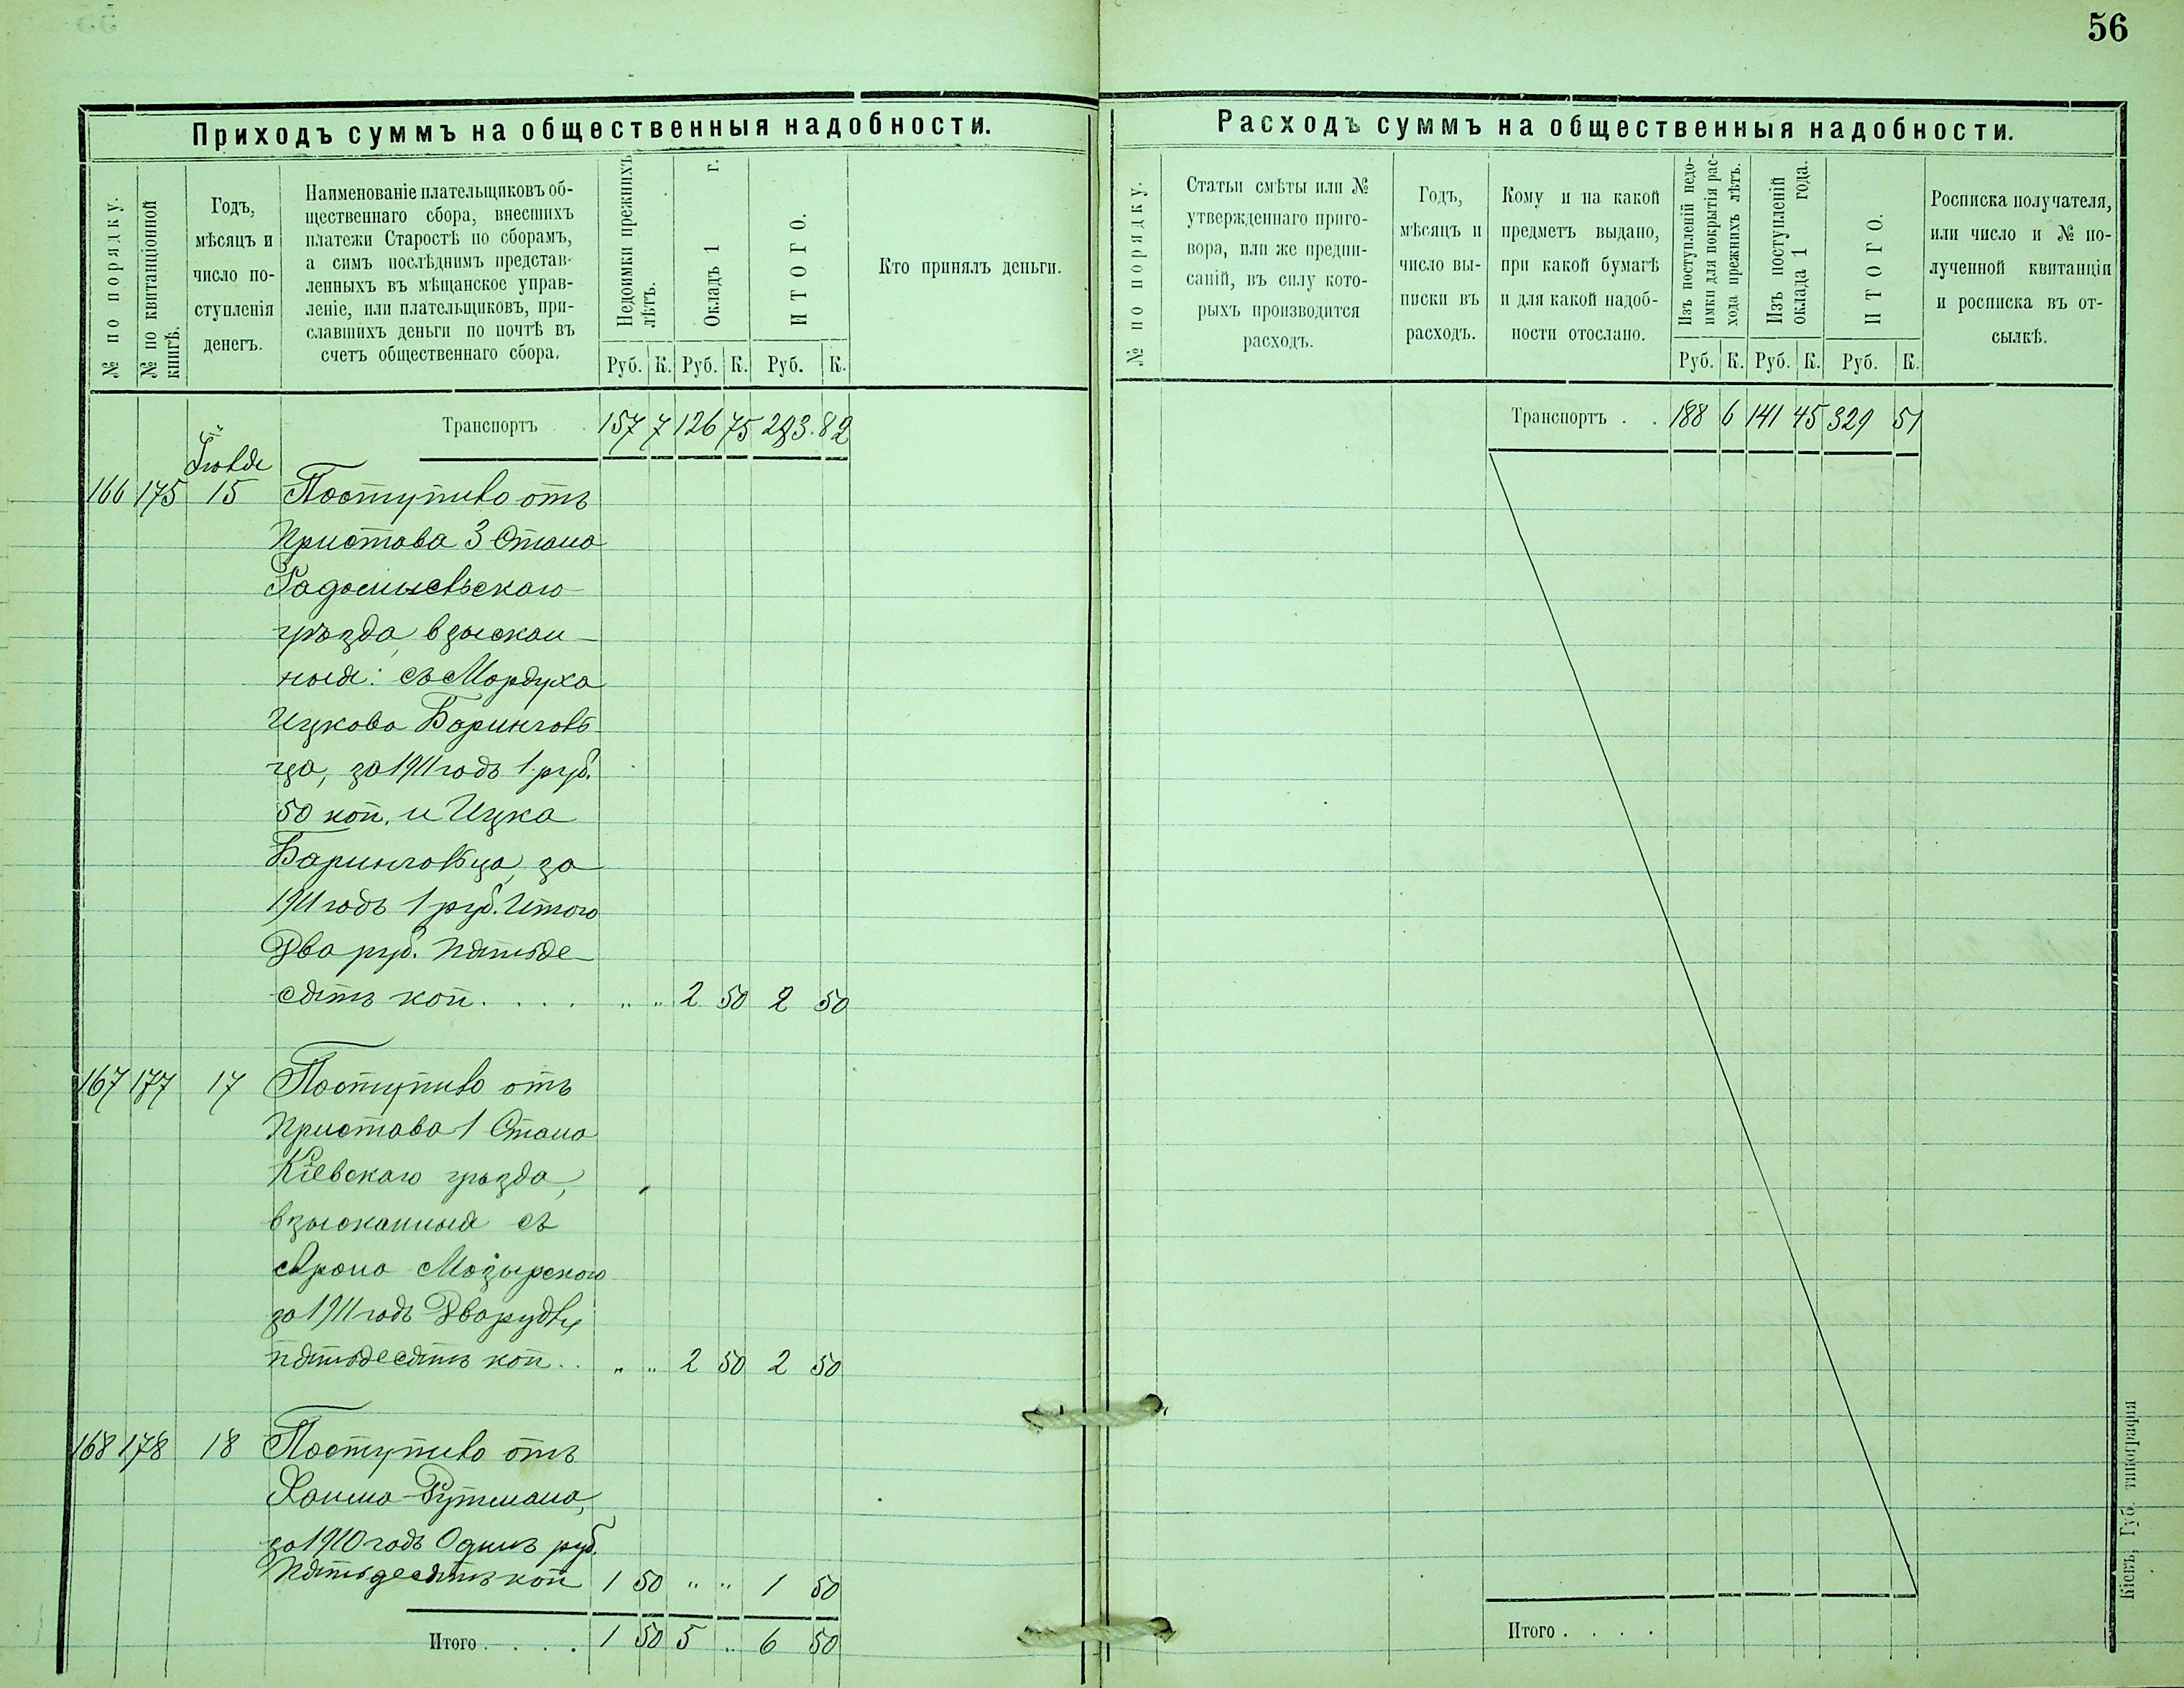 56
Приходъ суммъ на общественныя надобности.
№ по порядку.
№ по квитанціонной книгѣ.
Годъ,
мѣсяцъ и
число по-
ступленія
денегъ.
Наименованіе плательщиковъ об-
щественнаго сбора, внесшихъ
платежи Старостѣ по сборамъ,
а симъ послѣднимъ представ-
ленныхъ въ мѣщанское управ-
леніе, или плательщиковъ, при-
славшихъ деньги по почтѣ въ
счетъ общественнаго сбора.
Недоимки прежнихъ
лѣтъ.
Окладъ 1 г.
ИТОГО.
Руб. К. Руб. К. Руб. К.
Кто принялъ деньги.
Транспортъ . . 157 7 126 75 283 82
Іюля
166 175 15 Поступило отъ
Пристава 3 Стана
Радомысльскаго
уѣзда, взыскан-
ныя: съ Мордуха
Ицкова Барингов-
ца, за 1911 годъ 1 руб.
50 коп. и Ицка
Баринговца, за
1911 годъ 1 руб. Итого
Два руб. пятьде-
сятъ коп. . . . " " 2 50 2 50
167 177 17 Поступило отъ
Пристава 1 Стана
Кіевскаго уѣзда,
взысканныя съ
Арона Мозырского
за 1911 годъ Два рубля
пятьдесятъ коп. . " " 2 50 2 50
168 178 18 Поступило отъ
Хаима Рутмана,
за 1910 годъ Одинъ руб.
Пятьдесятъ коп 1 50 " " 1 50
Итого . . . . 1 50 5 " 6 50
Расходъ суммъ на общественныя надобности.
№ по порядку.
Статьи смѣты или №
утвержденнаго приго-
вора, или же предпи-
саній, въ силу кото-
рыхъ производится
расходъ.
Годъ,
мѣсяцъ и
число вы-
писки въ
расходъ.
Кому и на какой
предметъ выдано,
при какой бумагѣ
и для какой надоб-
ности отослано.
Изъ поступленій недо-
имки для покрытія рас-
хода прежнихъ лѣтъ.
Изъ поступленій
оклада 1 года.
ИТОГО.
Руб. К. Руб. К. Руб. К.
Росписка получателя,
или число и № по-
лученной квитанціи
и росписка въ от-
сылкѣ.
Транспортъ . . 188 6 141 45 329 51
Итого . . . .
Кіевъ, Губ. типографія